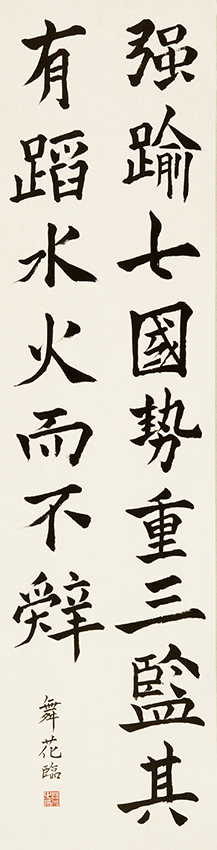 强踰七國勢重三監其
有蹈水火而不辤
舞花臨